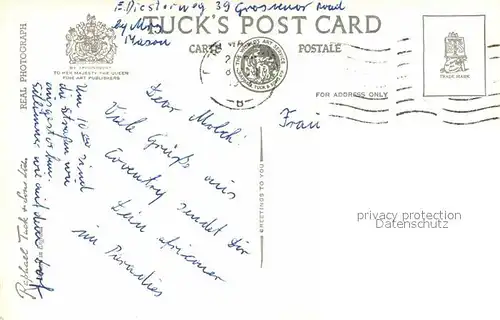 E. Diesterweg 39 Grosvenor Road
by Mrs
Mason
TUCK'S POST CARD
CARTE POSTALE
REAL PHOTOGRAPH
BY APPOINTMENT
TO HER MAJESTY THE QUEEN
FINE ART PUBLISHERS
FOR ADDRESS ONLY
TRADE MARK
Raphael Tuck & Sons Ltd.
GREETINGS TO YOU
Frau
Viele Grüße aus
Coventry sendet Dir
Dein
im Paradies
Um 10 sind
die Straßen wie
wie auf dem Dorf
privacy protection
Datenschutz